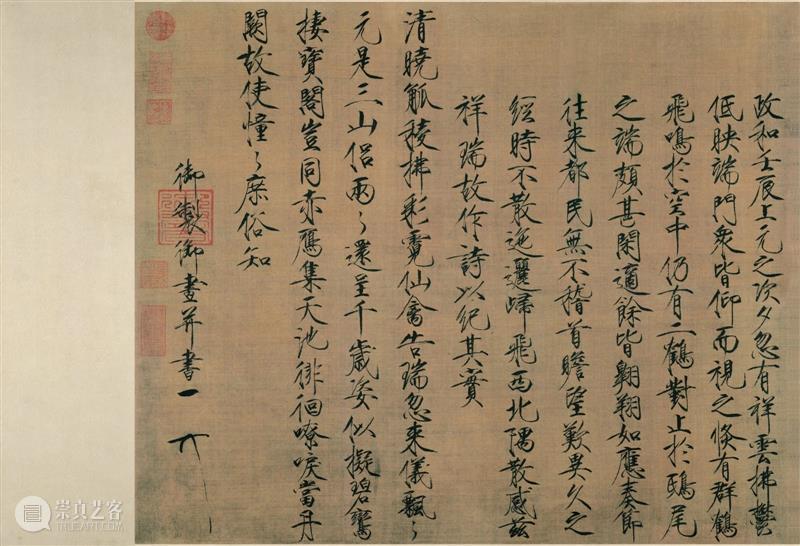 政和壬辰上元之次夕忽有祥雲拂鬱
低映端門衆皆仰而視之倏有群鶴
飛鳴於空中仍有二鶴對止於鴟尾
之端頗甚閑適餘皆翱翔如應奏節
往来都民無不稽首瞻望歎異久之
經時不散迤邐歸飛西北隅散感茲
祥瑞故作詩以紀其實
清曉觚稜拂彩霓仙禽告瑞忽来儀飄〻
元是三山侶兩〻還呈千歲姿似擬碧鸞
棲寶閣豈同赤鴈集天池徘徊嘹唳當丹
闕故使憧〻庶俗知
御製御畫并書
崇真艺客